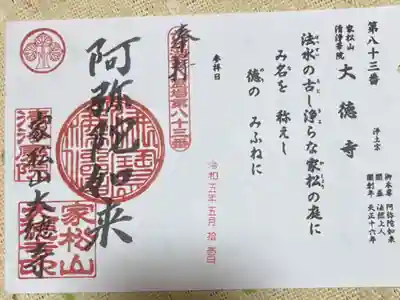 第八十三番
家松山
清浄華院
大徳寺
浄土宗
御本尊 阿弥陀如来
開基 法経上人
開創年 天正十六年
法水の古し浄らな家松の庭に
み名を称えし
徳のみふねに
参拝日
奉拝
第八十三番
令和五年五月拾壱日
阿弥陀如来
家松山大徳寺
家松山